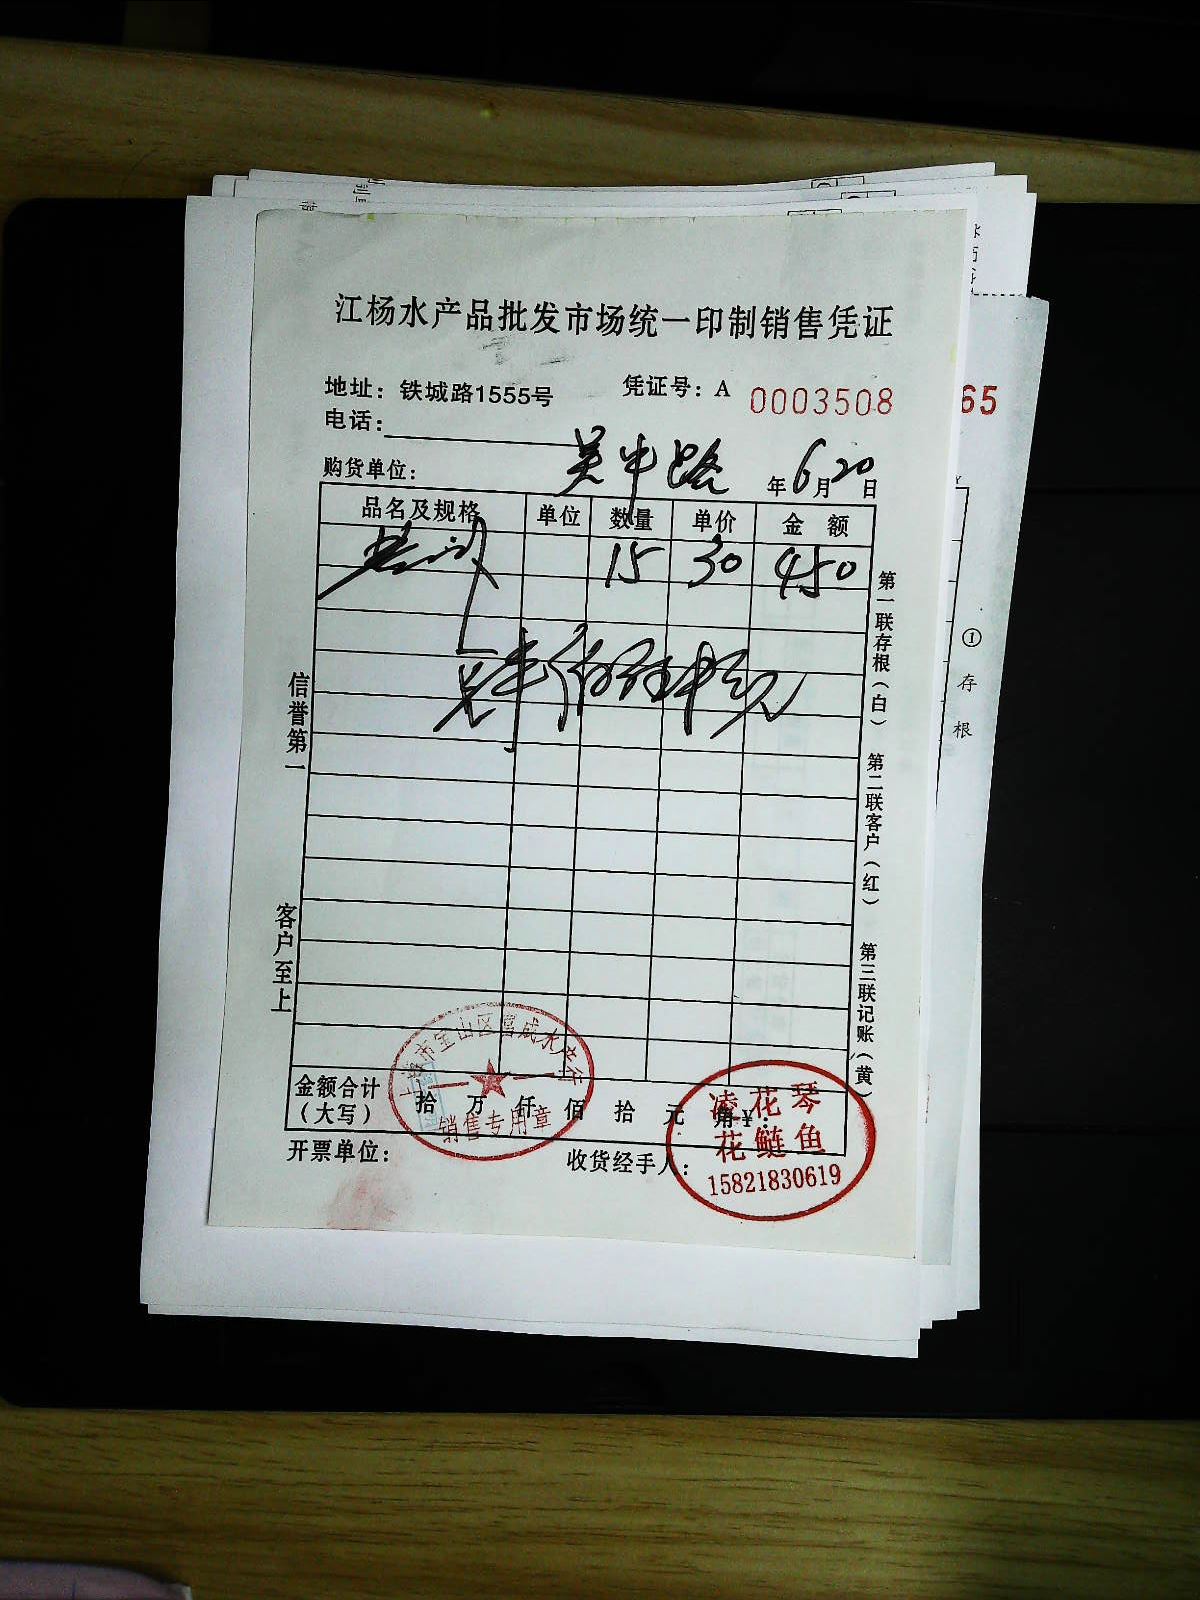 江杨水产品批发市场统一印制销售凭证
地址：铁城路1555号 凭证号：A 0003508
电话：
购货单位： 吴中路 年6月20日
品名及规格 单位 数量 单价 金 额
15 30 450
第一联存根（白） 第二联客户（红） 第三联记账（黄）
信誉第一 客户至上
金额合计（大写） 拾 万 仟 佰 拾 元 角 ¥：
开票单位： 收货经手人：
上海市宝山区 成水产行
销售专用章
凌花琴
花鲢鱼
15821830619
65
①存根